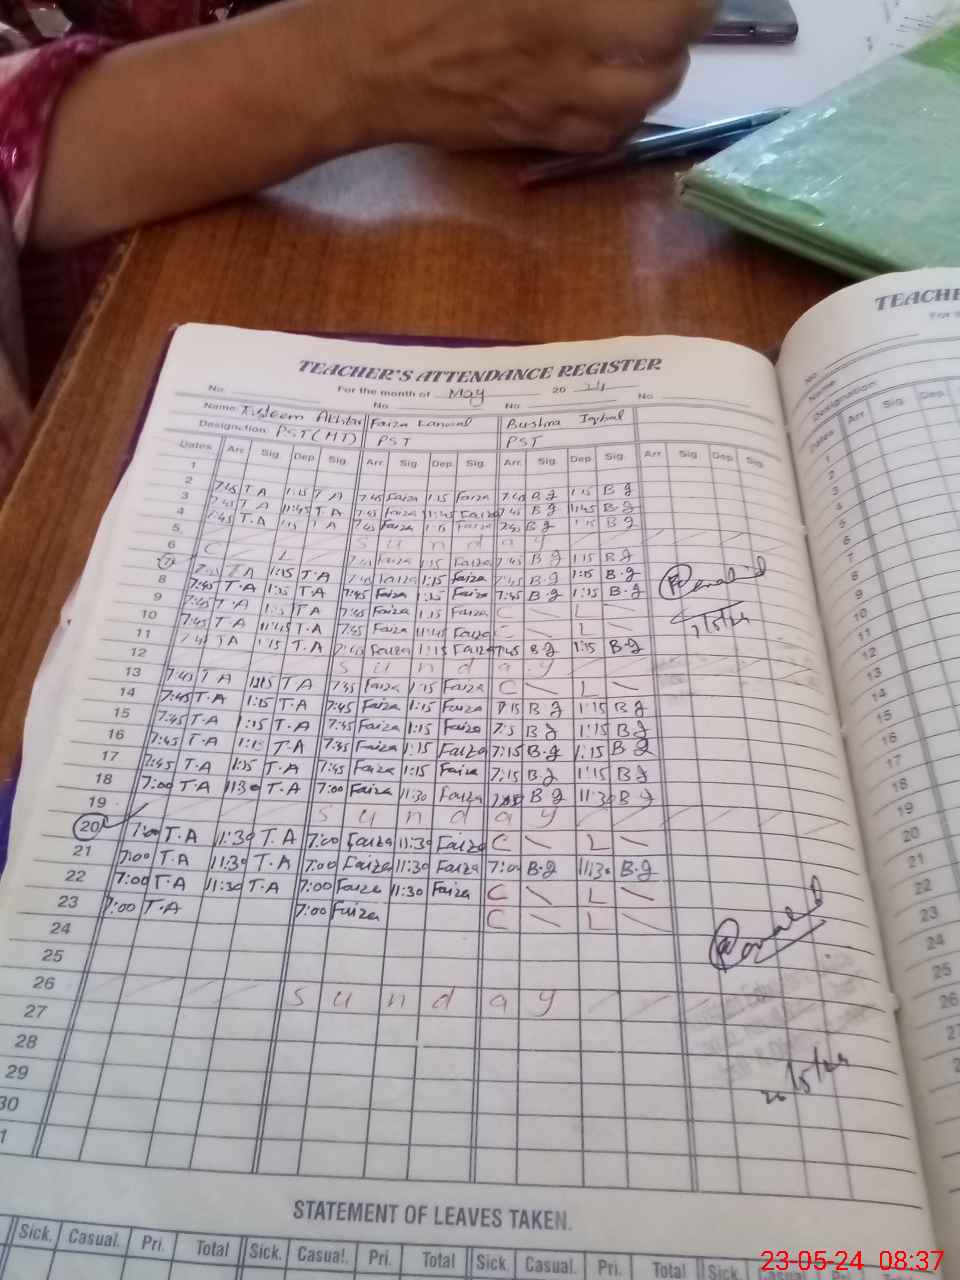 TEACHER'S ATTENDANCE REGISTER
For the month of May 20 24
No. No. No. No.
Name Akhtar Faiza Kanwal Bushra Iqbal
Designation: PST (HT) PST PST
Dates Arr. Sig. Dep. Sig. Arr. Sig. Dep. Sig. Arr. Sig. Dep. Sig. Arr. Sig. Dep. Sig.
1
2 7:45 T.A 1:15 T.A 7:45 Faiza 1:15 Faiza 1:15
3 7:45 T.A 11:45 T.A 7:45 Faiza 11:45 Faiza 7:45 11:45
4 7:45 T.A 1:15 T.A 7:45 Faiza 1:15 Faiza 7:45 1:15
5 Sunday
6 C L 7:45 Faiza 1:15 Faiza 7:45 1:15
7 T.A 1:15 T.A 7:45 Faiza 1:15 Faiza 7:45 1:15
8 7:45 T.A 1:15 T.A 7:45 Faiza 1:15 Faiza 7:45 1:15
9 7:45 T.A T.A 7:45 Faiza 1:15 Faiza C L
10 7:45 T.A 11:45 T.A 7:45 Faiza 11:45 Faiza C L
11 7:45 T.A 1:15 T.A 7:45 Faiza 1:15 Faiza 7:45 1:15
12 Sunday
13 7:45 T.A T.A 7:45 Faiza 1:15 Faiza C L
14 7:45 T.A 1:15 T.A 7:45 Faiza 1:15 Faiza 1:15
15 7:45 T.A 1:15 T.A 7:45 Faiza 1:15 Faiza 1:15
16 7:45 T.A 1:15 T.A 7:45 Faiza 1:15 Faiza 7:15 1:15
17 7:45 T.A 1:15 T.A 7:45 Faiza 1:15 Faiza 7:15 1:15
18 7:00 T.A 11:30 T.A 7:00 Faiza 11:30 Faiza 11:30
19 Sunday
20 7:00 T.A 11:30 T.A 7:00 Faiza 11:30 Faiza C L
21 7:00 T.A 11:30 T.A 7:00 Faiza 11:30 Faiza 7:00 11:30
22 7:00 T.A 11:30 T.A 7:00 Faiza 11:30 Faiza C L
23 7:00 T.A 7:00 Faiza C L
24
25
26 Sunday
27
28
29
30
1
7/5/24
STATEMENT OF LEAVES TAKEN.
Sick. Casual. Pri. Total Sick. Casual. Pri. Total Sick. Casual. Pri. Total Sick
TEACHE
No.
Name
Designation:
Dates Arr. Sig. Dep.
1
2
3
4
5
6
7
8
9
10
11
12
13
14
15
16
17
18
19
20
21
22
23
24
25
26
27
23-05-24 08:37